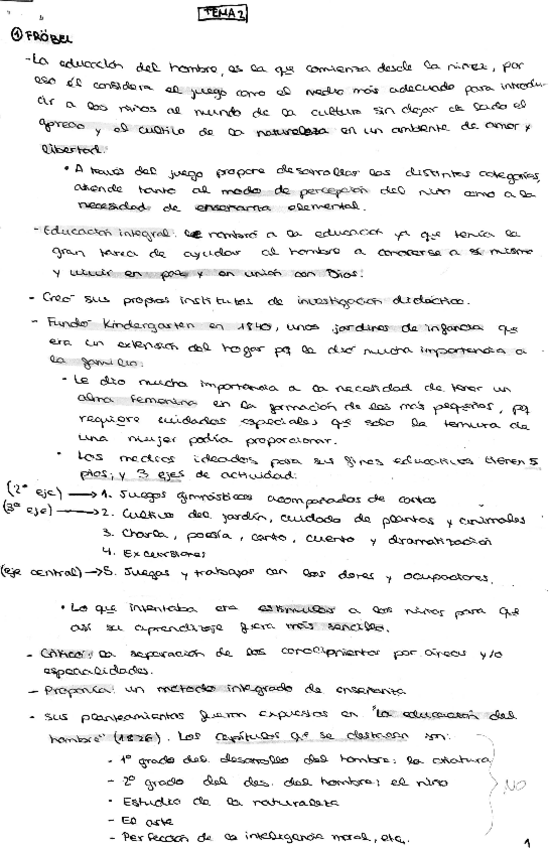 TEMA 2
① FRÖBEL
- La educación del hombre, es la que comienza desde la niñez, por
eso él considera el juego como el medio más adecuado para introdu-
cir a los niños al mundo de la cultura sin dejar de lado el
aprecio y el cultivo de la naturaleza en un ambiente de amor y
libertad.
• A través del juego propone desarrollar las distintas categorías,
atiende tanto al modo de percepción del niño como a la
necesidad de enseñanza elemental.
- Educación integral: nombró a la educación ya que tenía la
gran tarea de ayudar al hombre a conocerse a sí mismo
y vivir en paz y en unión con Dios.
- Creó sus propios institutos de investigación didáctica.
- Fundó Kindergarten en 1840, unos jardines de infancia que
era un extensión del hogar pq le dió mucha importancia a
la familia.
• Le dio mucha importancia a la necesidad de tener un
alma femenina en la formación de los más pequeños, pq
requiere cuidados especiales qe solo la ternura de
una mujer podía proporcionar.
• Los medios ideados para sus fines educativos tienen 5
ptos, y 3 ejes de actividad:
(2º eje) → 1. Juegos gimnásticos acompañados de cantos
(3º eje) → 2. Cultivo del jardín, cuidado de plantas y animales
3. Charla, poesía, canto, cuento y dramatización
4. Excursiones
(eje central) → 5. Juegos y trabajos con los dones y ocupaciones.
• Lo que intentaba era estimular a los niños para que
así su aprendizaje fuera más sencillo.
- Criticó: la separación de los conocimientos por áreas y/o
especialidades.
- Proponía: un método integrado de enseñanza
- Sus planteamientos fueron expuestos en "La educación del
hombre" (1826). Los capítulos qe se destacan son:
- 1º grado del desarrollo del hombre: la criatura
- 2º grado del des. del hombre: el niño
• Estudio de la naturaleza
- El arte
- Perfección de la inteligencia moral, etc.
NO
1